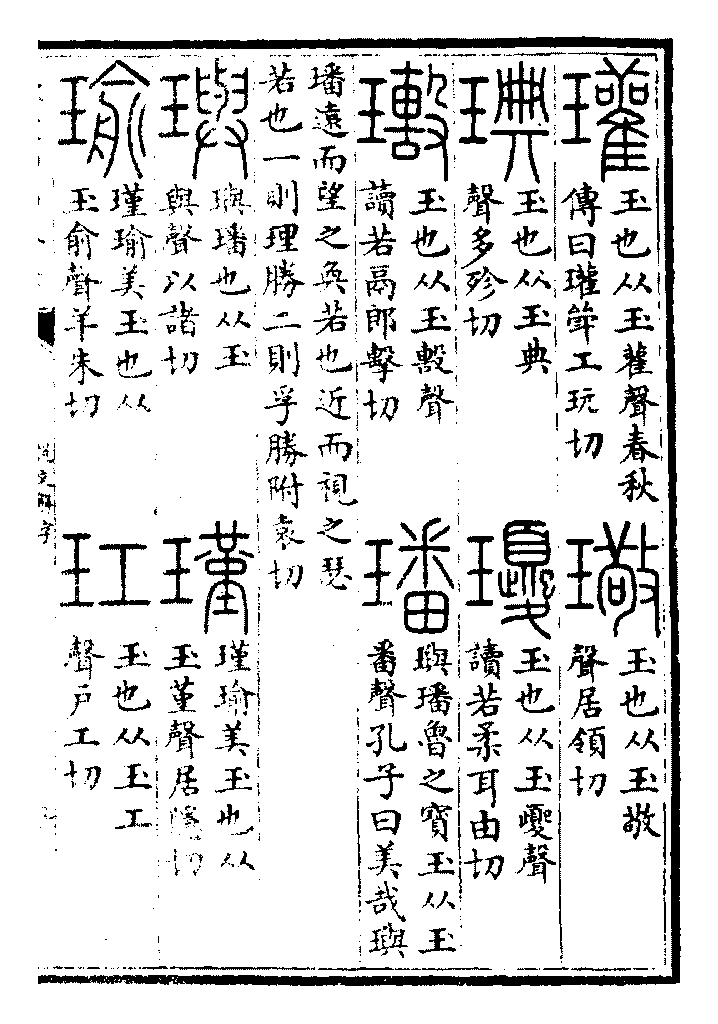 瓘
玉也从玉雚聲春秋
傳曰瓘斝工玩切
璥
玉也从玉敬
聲居領切
琠
玉也从玉典
聲多殄切
瓇
玉也从玉夒聲
讀若柔耳由切
玉也从玉毄聲
讀若鬲郎擊切
璠
璵璠魯之寶玉从玉
番聲孔子曰美哉璵
璠遠而望之奐若也近而視之瑟
若也一則理勝二則孚勝附袁切
璵
璵璠也从玉
與聲以諸切
瑾
瑾瑜美玉也从
玉堇聲居隱切
瑜
瑾瑜美玉也从
玉俞聲羊朱切
玒
玉也从玉工
聲戶工切
說文解字